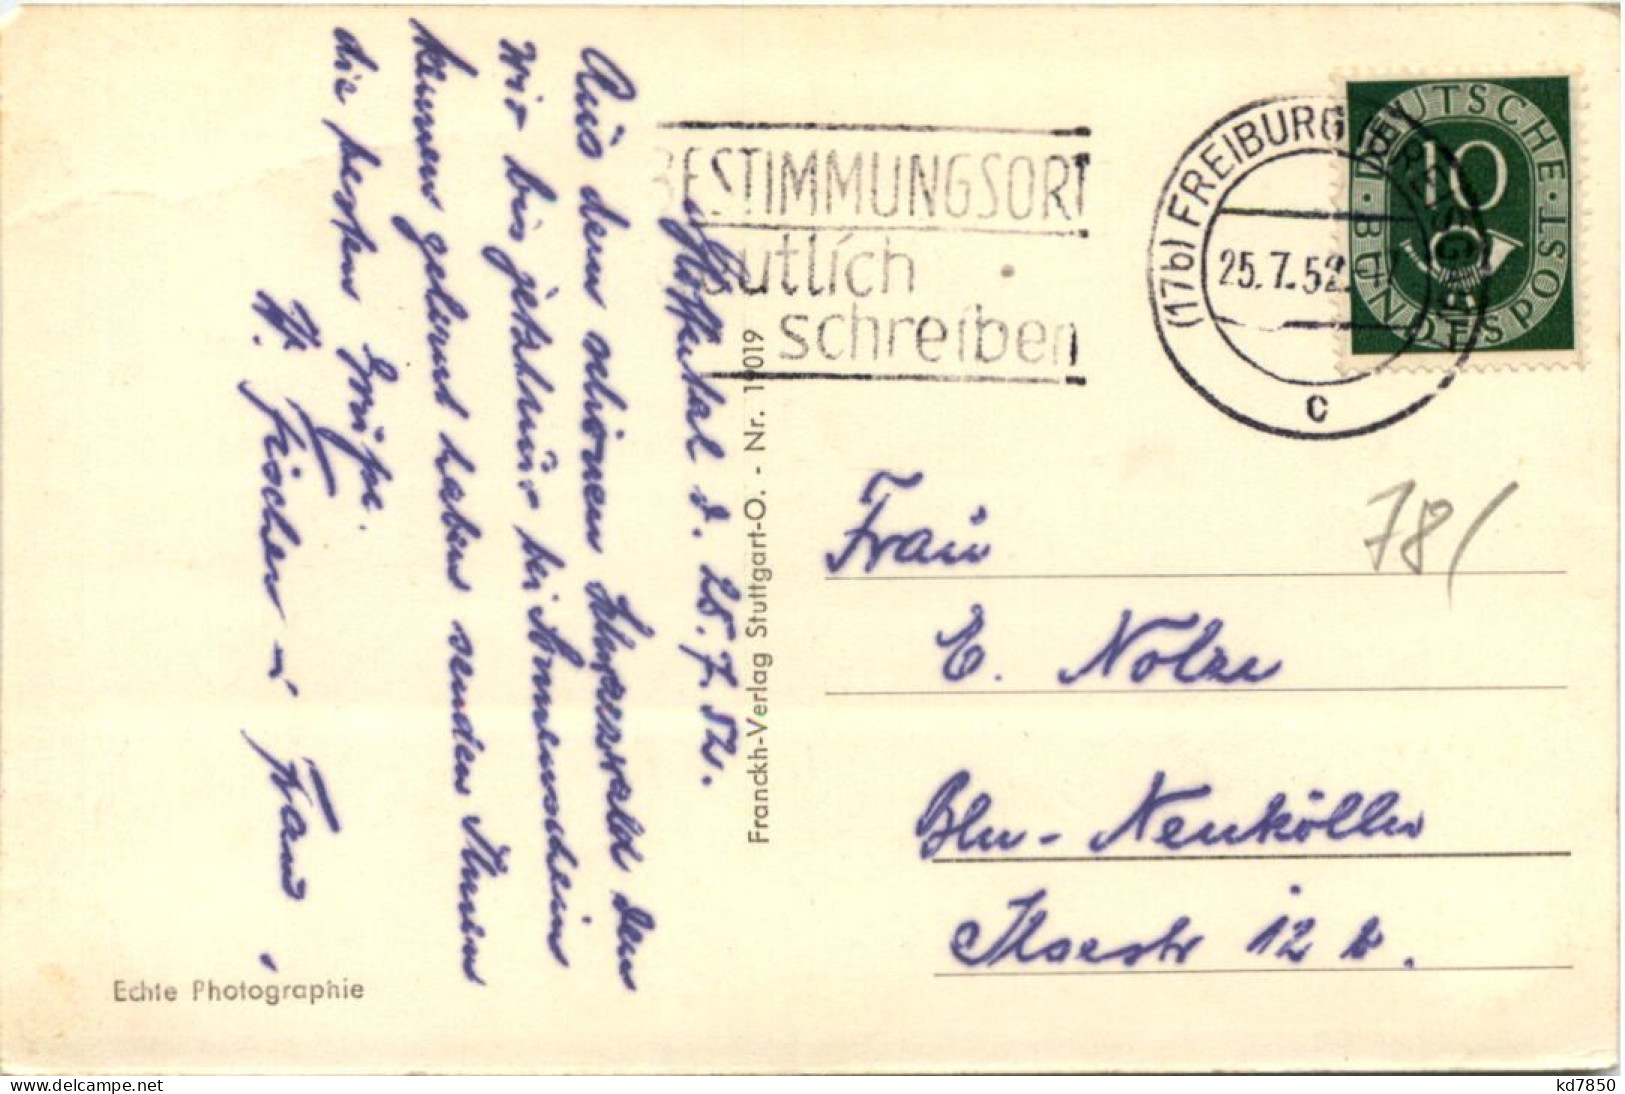 Höllental d. 25.7.52.
Aus dem schönen Schwarzwald den
wir bis jetzt nur bei Sonnenschein
kennen gelernt haben senden Ihnen
die besten Grüße.
H. Fischer u. Frau.
BESTIMMUNGSORT
deutlich
schreiben
(17b) FREIBURG (BREISGAU)
25.7.52.-17
c
DEUTSCHE BUNDESPOST
10
Franckh-Verlag Stuttgart-O. - Nr. 19019
78/
Frau
E. Nolze
Bln-Neukölln
12 b.
Echte Photographie
www.delcampe.net
kd7850